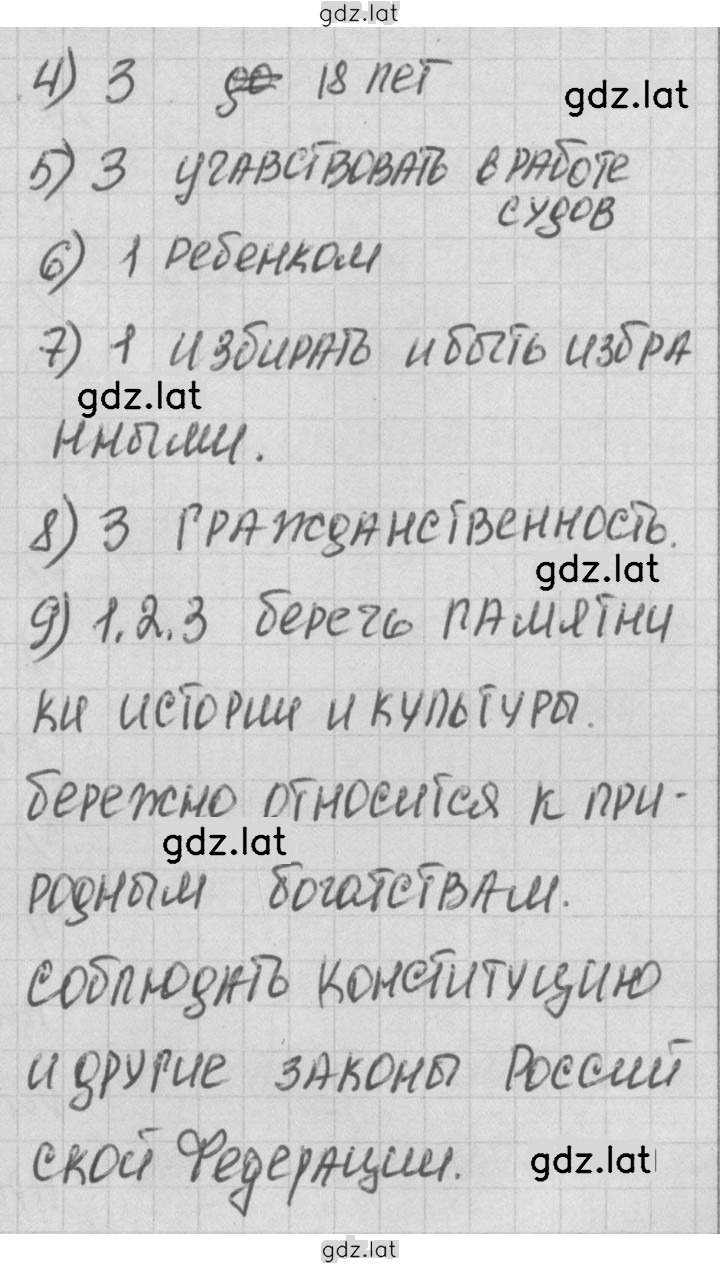 gdz.lat
4) 3 18 лет
gdz.lat
5) 3 учавствовать в работе
судов
6) 1 ребенком
7) 1 избирать и быть избра
gdz.lat
нными.
8) 3 гражданственность.
gdz.lat
9) 1.2.3 беречь памятни
ки истории и культуры.
бережно относится к при-
gdz.lat
родным богатствам.
соблюдать конституцию
и другие законы Россий
ской Федерации.
gdz.lat
gdz.lat